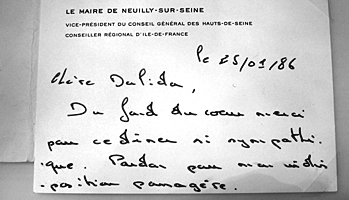 LE MAIRE DE NEUILLY-SUR-SEINE
VICE-PRÉSIDENT DU CONSEIL GÉNÉRAL DES HAUTS-DE-SEINE
CONSEILLER RÉGIONAL D'ILE-DE-FRANCE
le 25/01/86
Chère Dalida,
Du fond du coeur merci
pour ce dîner si sympathi-
-que. Pardon pour mon indis-
-position passagère.